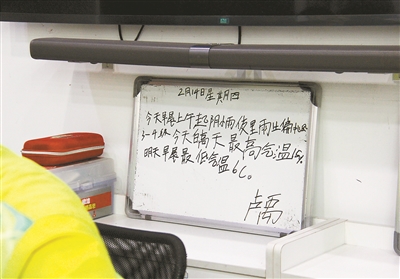 2月14日星期四
今天早晨上午起阴雨夜里雨止偏北风
3-4级今天天最高气温15℃
明天早晨最低气温6℃。